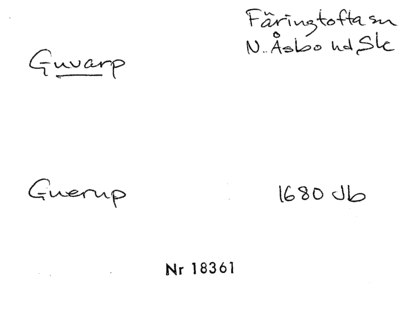 Färingtofta sn
Guvarp N. Åsbo hd, Sk
Guerup 1680 Jb
Nr 18361